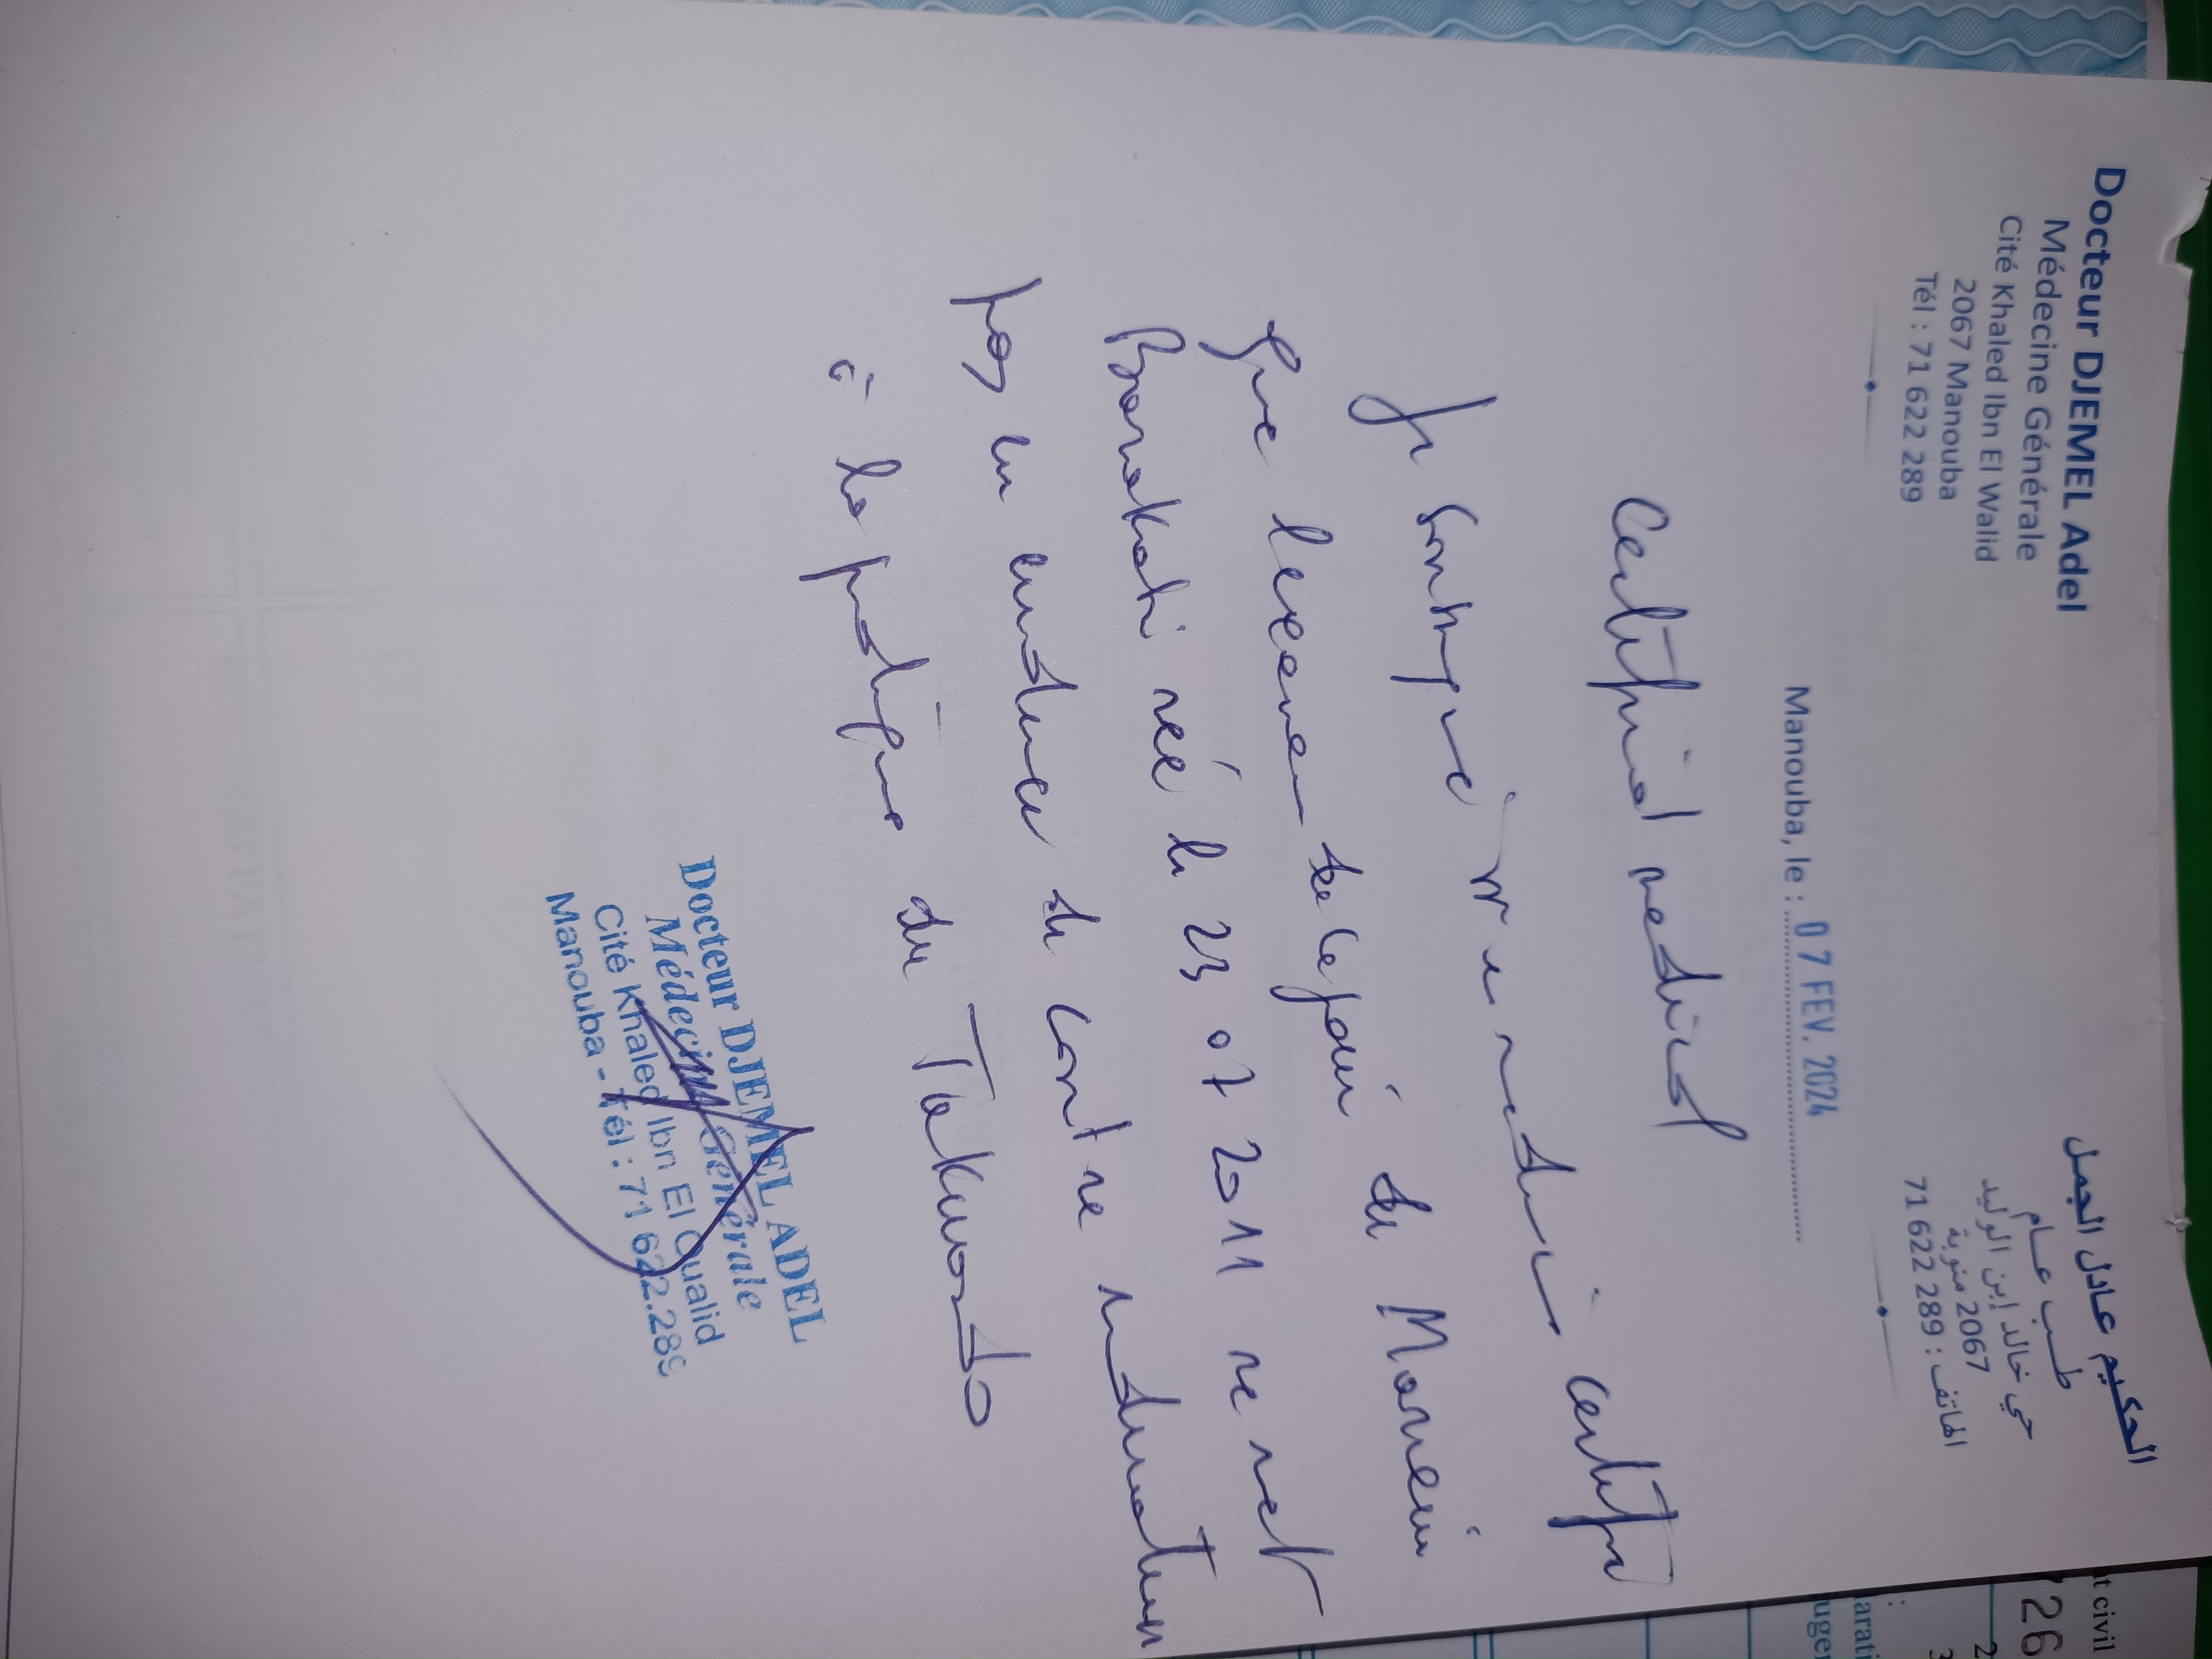 Docteur DJEMEL Adel
Médecine Générale
Cité Khaled Ibn El Walid
2067 Manouba
Tél : 71 622 289
الحكيم عادل الجمل
طب عام
حي خالد إبن الوليد
2067 منوبة
الهاتف : 71 622 289
Manouba, le : 07 FEV. 2024
Certificat médical
Je soussigné médecin certifie
que l'examen de ce jour de
Barakati née le 23 07 2011 ne met
pas en évidence de contre indication
à la pratique du Takwondo
Docteur DJEMEL ADEL
Médecine Générale
Cité Khaled Ibn El Oualid
Manouba - Tél : 71 622.289
t civil
26